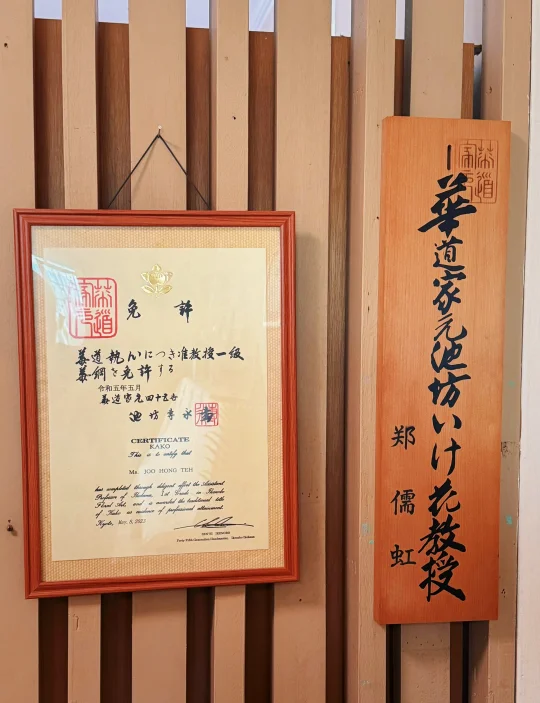 免許
華道執心につき准教授一級
華綱を免許する
令和五年五月
華道家元四十五世
池坊専永
CERTIFICATE
KAKO
This is to certify that
Ms. JOO HONG TEH
has completed through diligent effort the Assistant
Professor of Ikebana, 1st Grade in Ikenobo
Floral Art, and is awarded the traditional title
of Kako as evidence of professional attainment.
Kyoto, May. 8, 2023
SENEI IKENOBO
Forty-fifth Generation Headmaster, Ikenobo Ikebana
華道家元池坊いけ花教授
郑儒虹